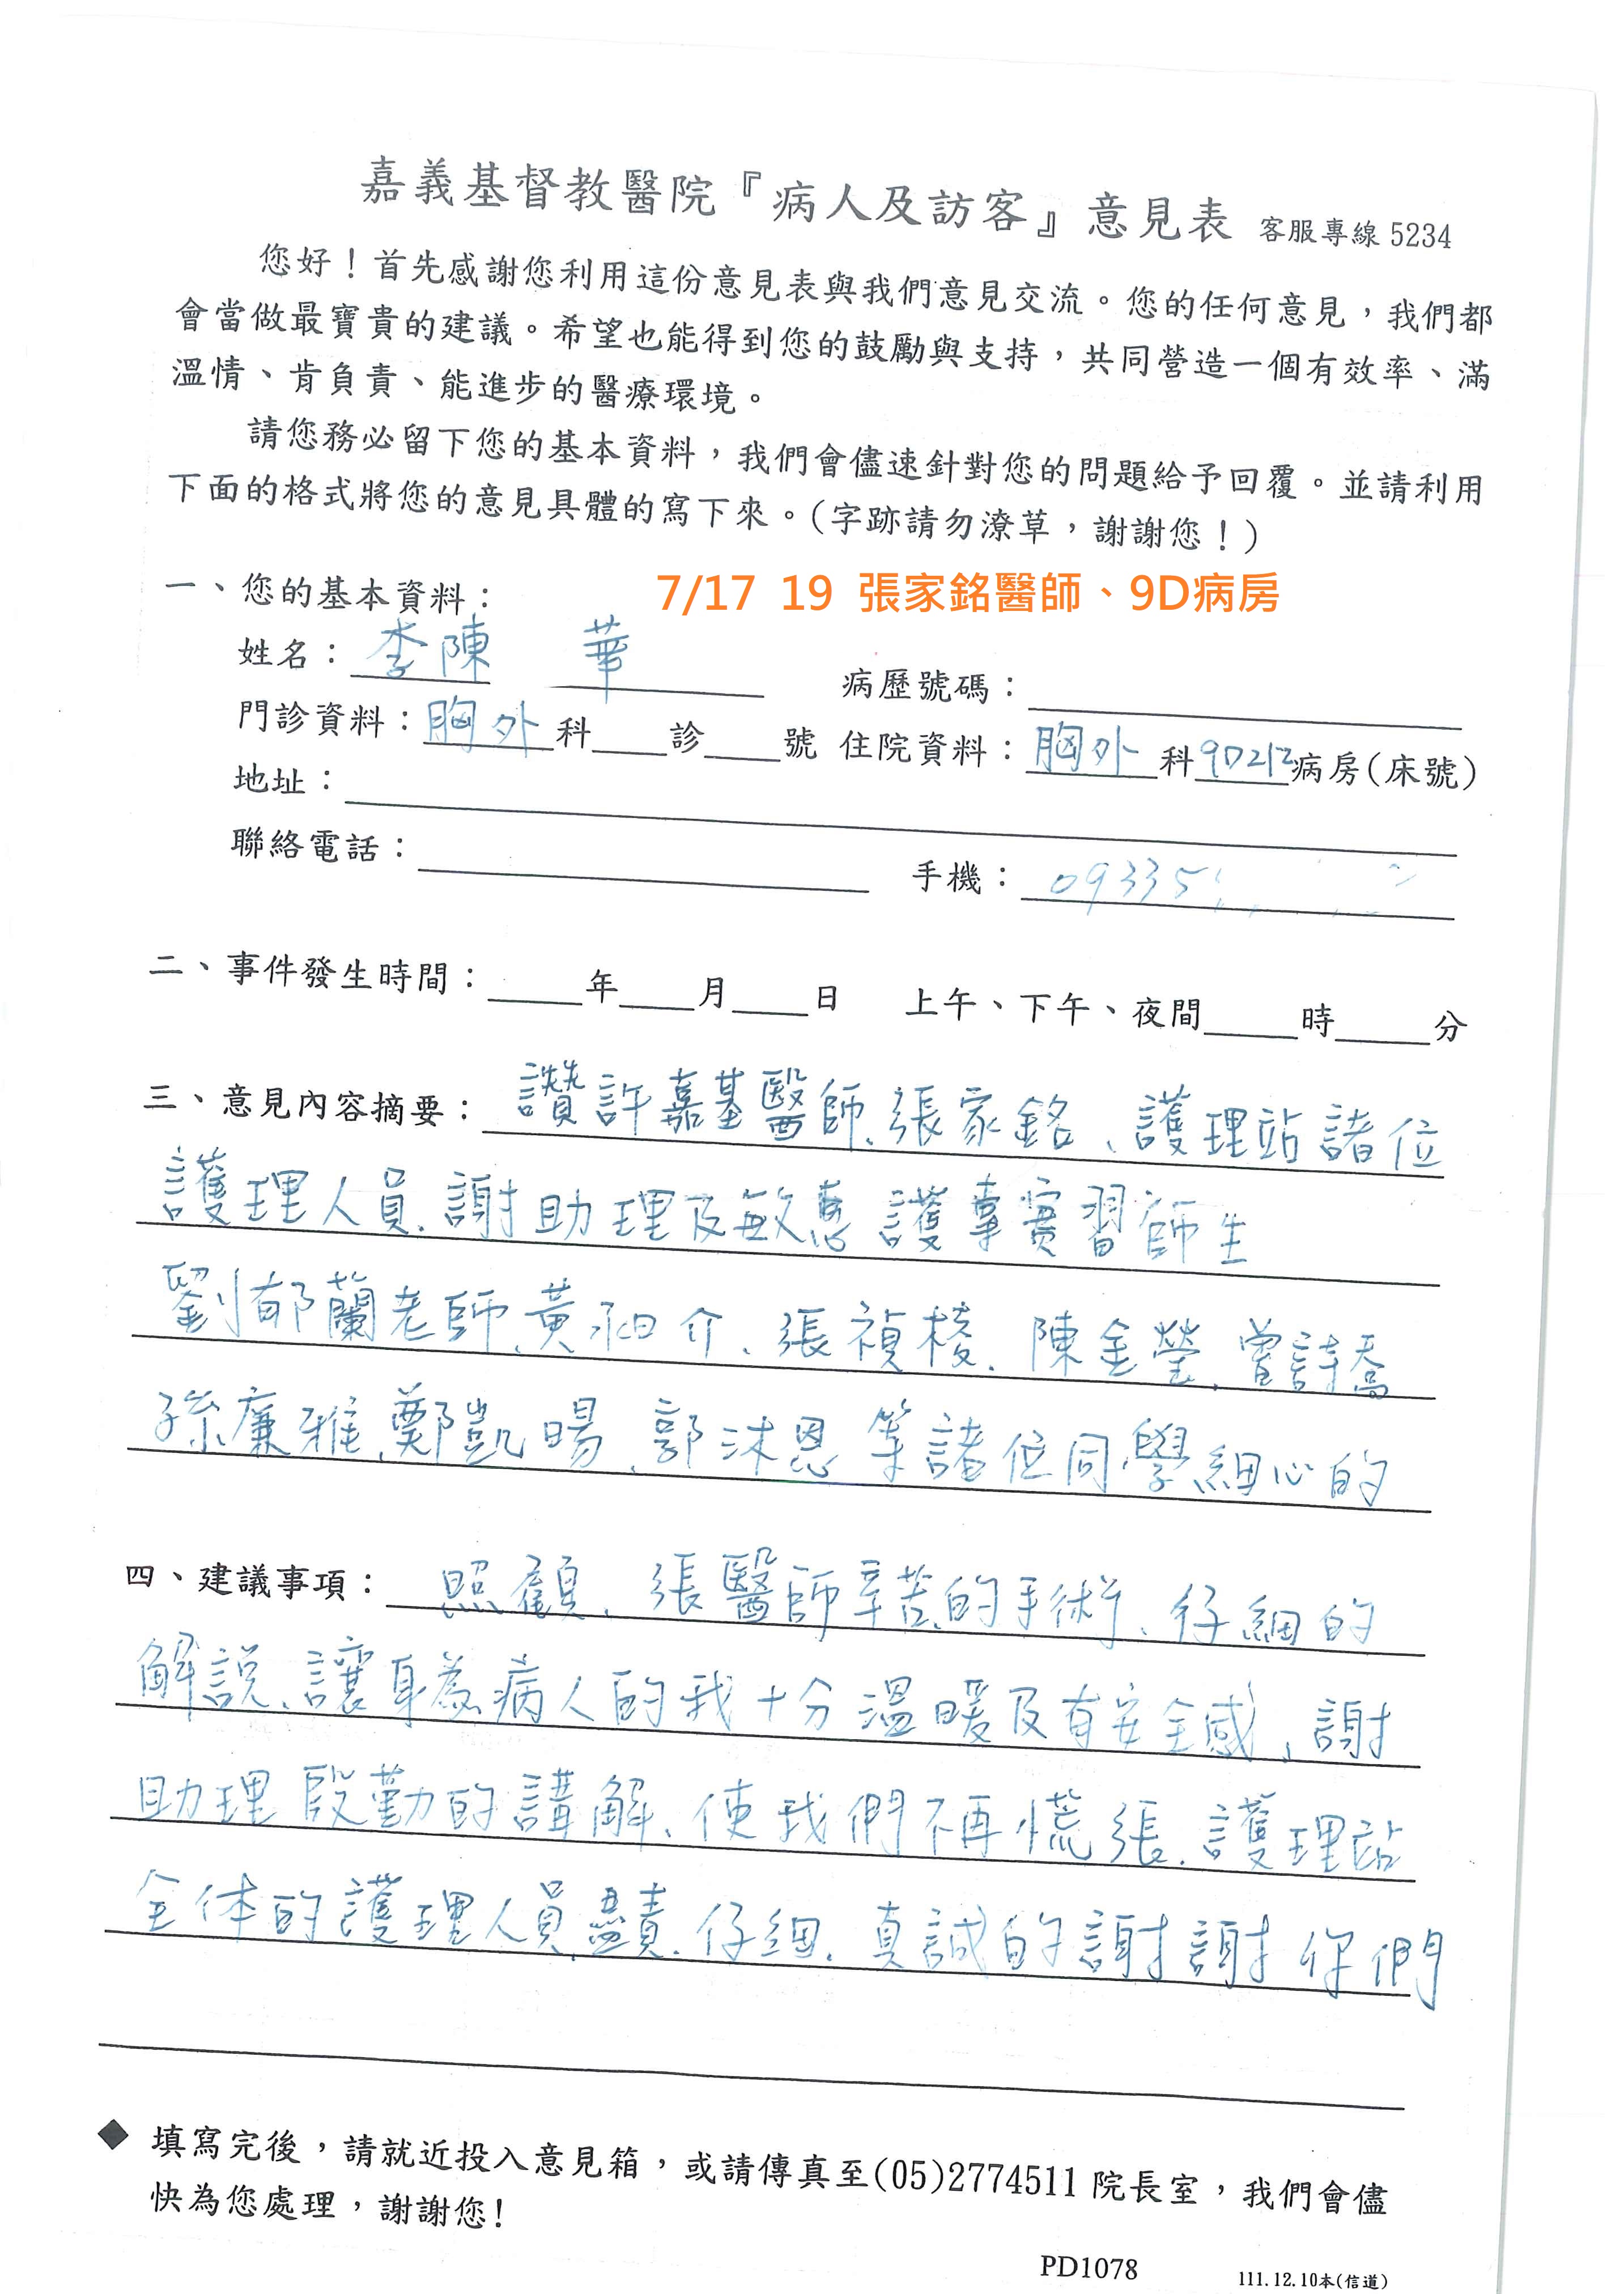 嘉義基督教醫院『病人及訪客』意見表 客服專線 5234
您好！首先感謝您利用這份意見表與我們意見交流。您的任何意見，我們都
會當做最寶貴的建議。希望也能得到您的鼓勵與支持，共同營造一個有效率、滿
溫情、肯負責、能進步的醫療環境。
請您務必留下您的基本資料，我們會儘速針對您的問題給予回覆。並請利用
下面的格式將您的意見具體的寫下來。(字跡請勿潦草，謝謝您！)
一、您的基本資料： 7/17 19 張家銘醫師、9D病房
姓名：李陳 華 病歷號碼：
門診資料：胸外科 診 號 住院資料：胸外科9D212病房(床號)
地址：
聯絡電話： 手機：09335
二、事件發生時間： 年 月 日 上午、下午、夜間 時 分
三、意見內容摘要：讚許嘉基醫師、張家銘、護理站諸位
護理人員、謝助理及敏惠護專實習師生
劉郁蘭老師、黃 介、張禎 、陳金瑩、曾詩喬
孫廉雅、鄭凱暘、郭沐恩等諸位同學細心的
四、建議事項：照顧、張醫師辛苦的手術、仔細的
解說、讓身為病人的我十分溫暖及有安全感、謝
助理殷勤的講解、使我們不再慌張、護理站
全体的護理人員盡責、仔細、真誠的謝謝你們
◆ 填寫完後，請就近投入意見箱，或請傳真至(05)2774511 院長室，我們會儘
快為您處理，謝謝您！
PD1078 111.12.10本(信道)